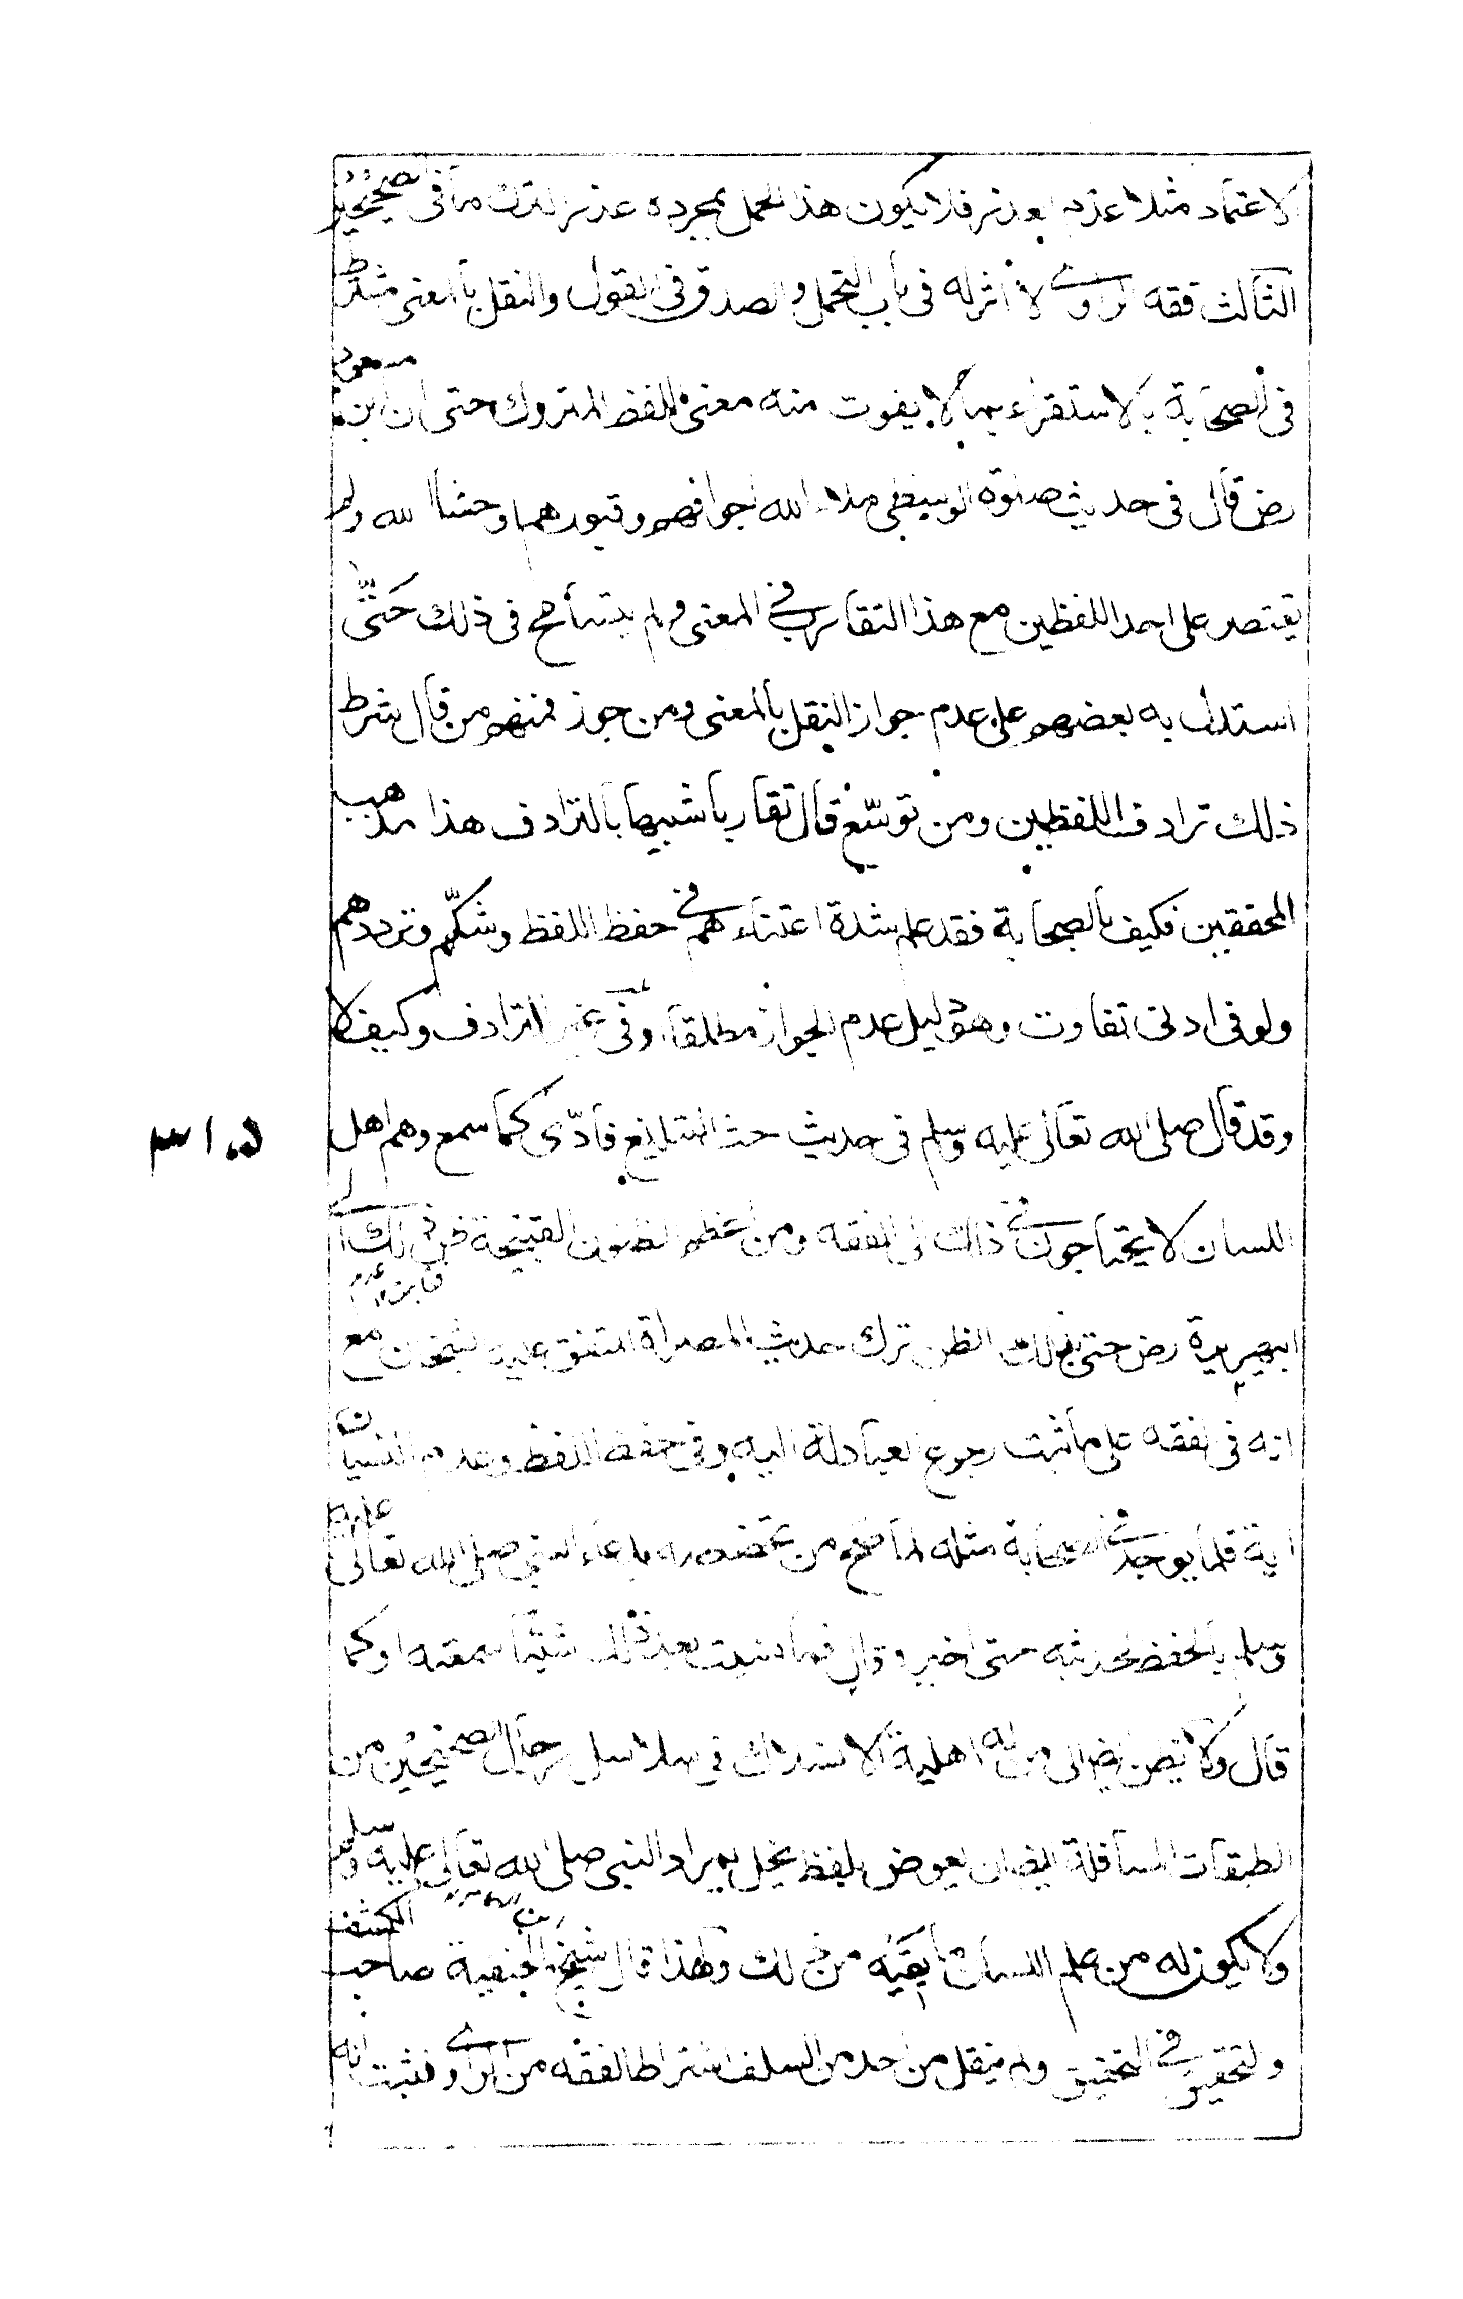 لاعتماد مثلا عنده بعذر فلا يكون هذا الحمل بمجرده عذر الترك ما في الصحيحين
الثالث فقه الراوي لا اثر له في باب التحمل والصدق في القول والنقل بالمعنى مشترط
في الصحابة بالاستقراء بما لا يفوت منه معنى اللفظ المتروك حتى ان ابن مسعود
رض قال في حديث صلوة الوسطى ملاء الله اجوافهم وقبورهم او حشا الله ولم
يقتصر على احد اللفظين مع هذا التقارب في المعنى ولم يتسامح في ذلك حتى
استدل به بعضهم على عدم جواز النقل بالمعنى ومن جوز فمنهم من قال بشرط
ذلك ترادف اللفظين ومن توسّع قال تقاربا شبيها بالترادف هذا مذهب
المحققين فكيف بالصحابة فقد علم شدة اعتناءهم في حفظ اللفظ وشكّهم وترددهم
ولو في ادنى تفاوت وهو دليل عدم الجواز مطلقا وفي غير الترادف وكيف لا
وقد قال صلى الله تعالى عليه وسلم في حديث حث التبليغ فادّى كما سمع وهم اهل
اللسان لا يحتاجون في ذلك الى الفقه ومن اعظم الظنون القبيحة في ذلك الى
ابي هريرة رض حتى بذلك الظن ترك حديث المصراة المتفق عليه الشيخان مع
انه في الفقه على ما ثبت رجوع العبادلة اليه وفي حفظ اللفظ وعدم النسيان
اية قلما يوجد في الصحابة مثله لما صح من دعاء النبي صلى الله تعالى عليه
وسلم بالحفظ لحديثه حتى اخبر وقال فما نسيت بعد ذلك شيئا سمعته او كما
قال ولا يظن ايضا الى من له اهلية الاشتراك في سلاسل رجال الصحيحين من
الطبقات السافلة ايضا ان يعوض بلفظ يخل بمراد النبي صلى الله تعالى عليه وسلم
ولا يكون له من علم اللسان ما يقيه من ذلك ولهذا قال شيخ الحنفية صاحب الكشف
والتحقيق في التحقيق ولم ينقل من احد من السلف اشتراط الفقه من الراوي فثبت انه